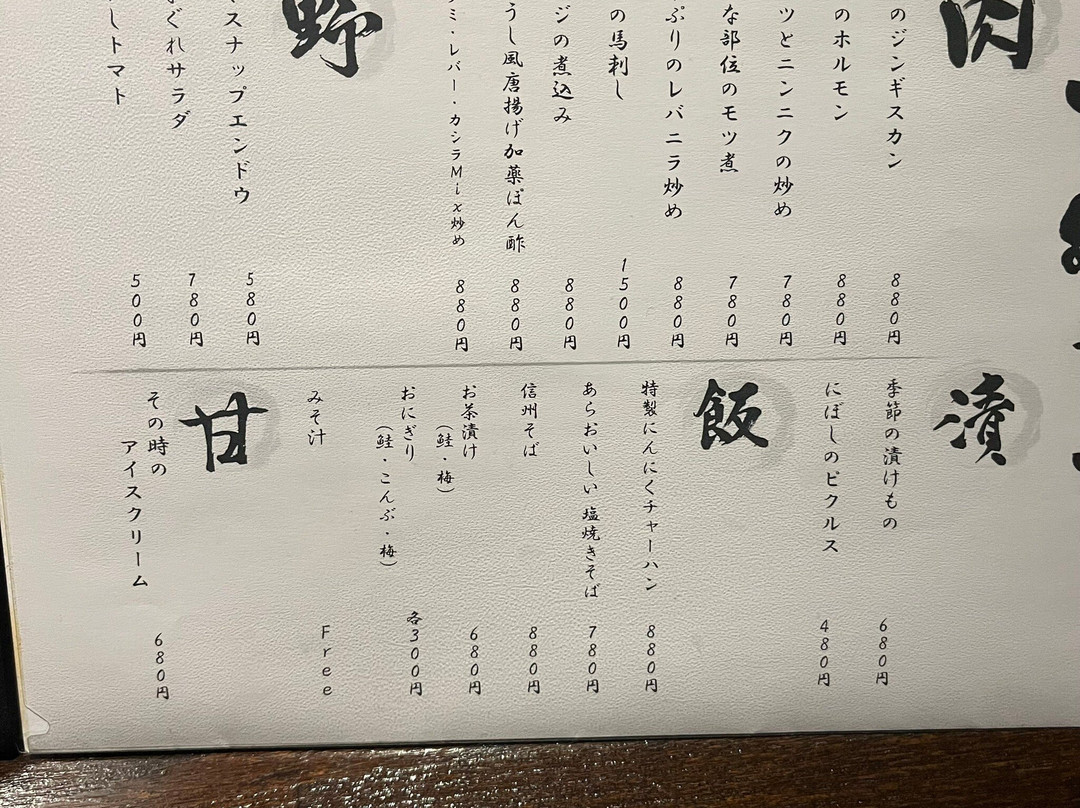 肉
のジンギスカン
880円
のホルモン
880円
ツとニンニクの炒め
780円
な部位のモツ煮
780円
ぷりのレバニラ炒め
880円
の馬刺し
1500円
ジの煮込み
880円
うし風唐揚げ加薬ぽん酢
880円
ミ・レバー・カシラMix炒め
880円
野
スナップエンドウ
580円
ぐれサラダ
780円
しトマト
500円
漬
季節の漬けもの
680円
にぼしのピクルス
480円
飯
特製にんにくチャーハン
880円
あらおいしい塩焼きそば
780円
信州そば
880円
お茶漬け
(鮭・梅)
680円
おにぎり
(鮭・こんぶ・梅)
各300円
みそ汁
Free
甘
その時の
アイスクリーム
680円